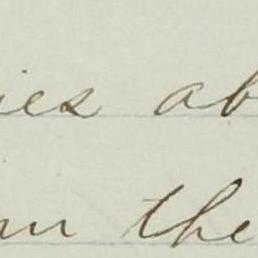 ies ab
m the